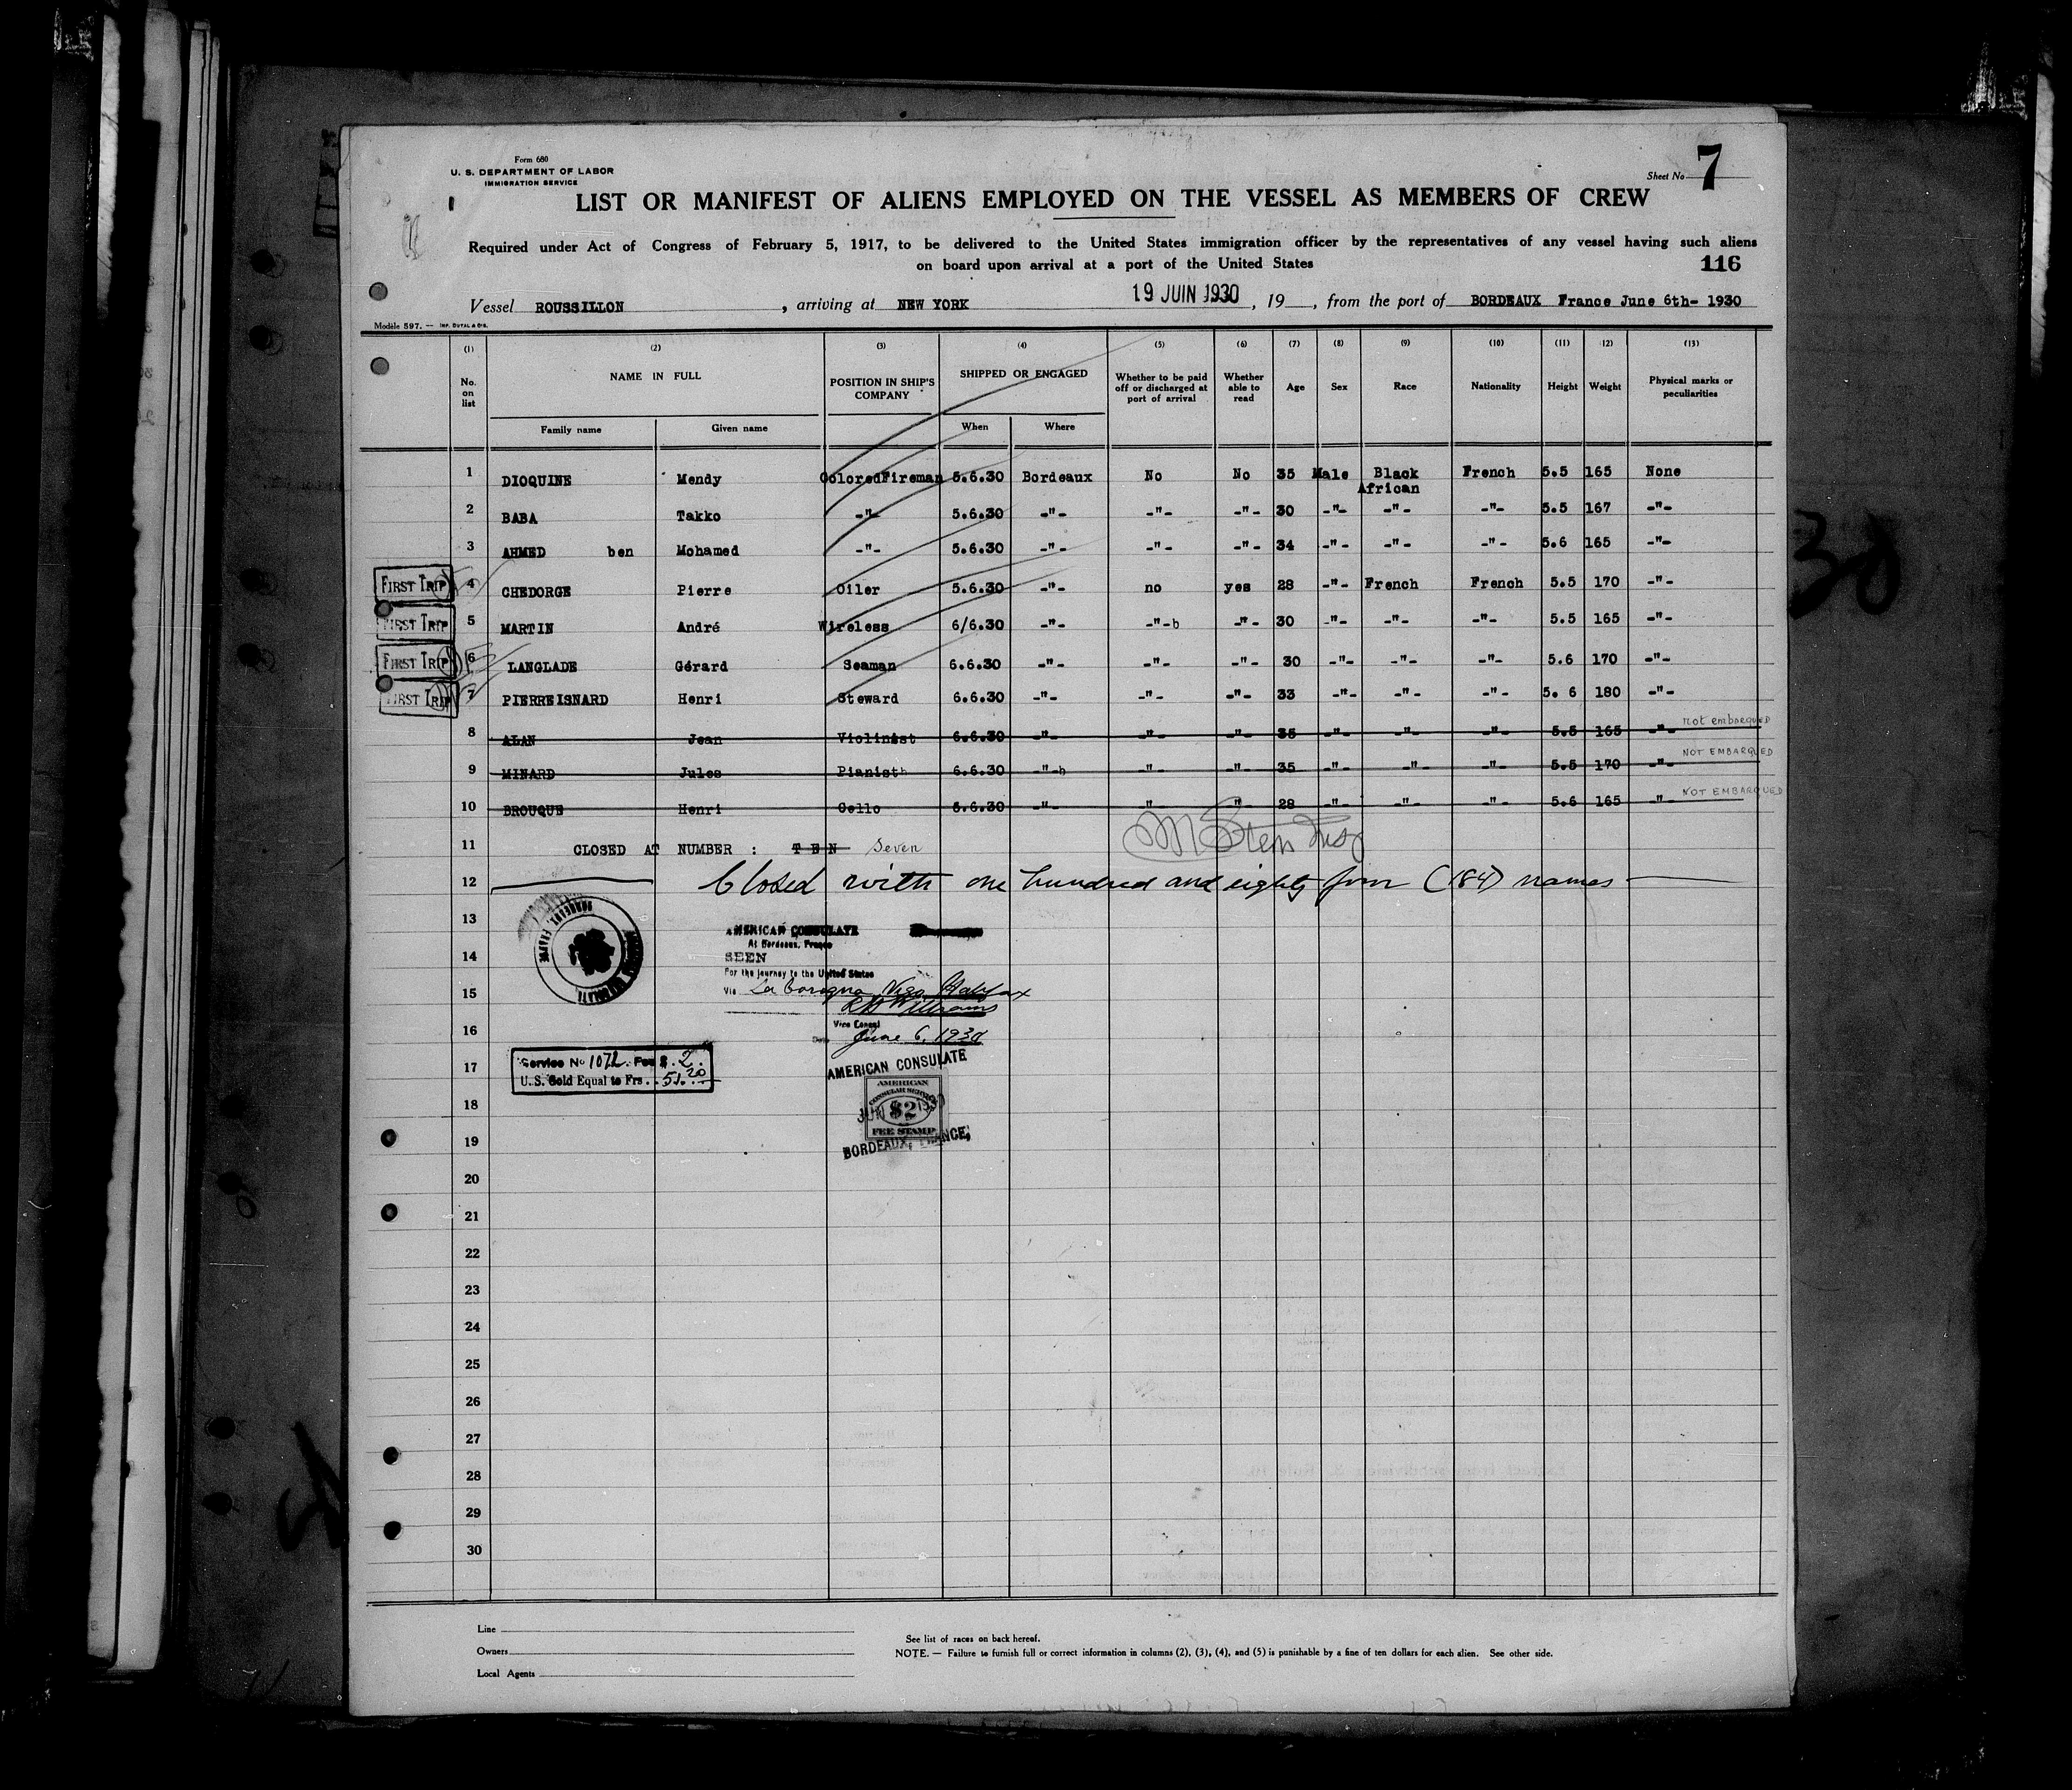 Form 680
U. S. DEPARTMENT OF LABOR
IMMIGRATION SERVICE
Sheet No 7
LIST OR MANIFEST OF ALIENS EMPLOYED ON THE VESSEL AS MEMBERS OF CREW
Required under Act of Congress of February 5, 1917, to be delivered to the United States immigration officer by the representatives of any vessel having such aliens
on board upon arrival at a port of the United States
116
Vessel ROUSSILLON , arriving at NEW YORK 19 JUIN 1930 , 19 , from the port of BORDEAUX France June 6th- 1930
Modèle 597. — IMP. DUVAL & DIS.
(1) (2) (3) (4) (5) (6) (7) (8) (9) (10) (11) (12) (13)
No. on list NAME IN FULL POSITION IN SHIP'S COMPANY SHIPPED OR ENGAGED Whether to be paid off or discharged at port of arrival Whether able to read Age Sex Race Nationality Height Weight Physical marks or peculiarities
Family name Given name When Where
1 DIOQUINE Mendy ColoredFireman 5.6.30 Bordeaux No No 35 Male Black African French 5.5 165 None
2 BABA Takko -"- 5.6.30 -"- -"- -"- 30 -"- -"- -"- 5.5 167 -"-
3 AHMED ben Mohamed -"- 5.6.30 -"- -"- -"- 34 -"- -"- -"- 5.6 165 -"-
FIRST TRIP 4 CHEDORGE Pierre Oiler 5.6.30 -"- no yes 28 -"- French French 5.5 170 -"-
FIRST TRIP 5 MARTIN André Wireless 6/6.30 -"- -"-b -"- 30 -"- -"- -"- 5.5 165 -"-
FIRST TRIP 6 LANGLADE Gérard Seaman 6.6.30 -"- -"- -"- 30 -"- -"- -"- 5.6 170 -"-
FIRST TRIP 7 PIERREISNARD Henri Steward 6.6.30 -"- -"- -"- 33 -"- -"- -"- 5. 6 180 -"-
8 ALAN Jean Violinist 6.6.30 -"- -"- -"- 35 -"- -"- -"- 5.5 165 -"- not embarqued
9 MINARD Jules Pianisth 6.6.30 -"-h -"- -"- 35 -"- -"- -"- 5.5 170 -"- NOT EMBARQUED
10 BROUQUE Henri Cello 6.6.30 -"- -"- -"- 28 -"- -"- -"- 5.6 165 -"- NOT EMBARQUED
11 CLOSED AT NUMBER : TEN Seven
12 Closed with one hundred and eighty four (184) names
13
AMERICAN CONSULATE
At Bordeaux, France
14
SEEN
For the journey to the United States
15
Via La Corogna Vigo Halifax
R W Williams
16
Vice Consul
Date June 6, 1930
17
Service No 1072. Fee $ . 2 .
U. S. Gold Equal to Frs . . 51.20
AMERICAN CONSULATE
AMERICAN
CONSULAR SERVICE
18
$2
FEE STAMP
19
BORDEAUX, FRANCE,
20
21
22
23
24
25
26
27
28
29
30
Line
Owners
Local Agents
See list of races on back hereof.
NOTE. — Failure to furnish full or correct information in columns (2), (3), (4), and (5) is punishable by a fine of ten dollars for each alien. See other side.
30